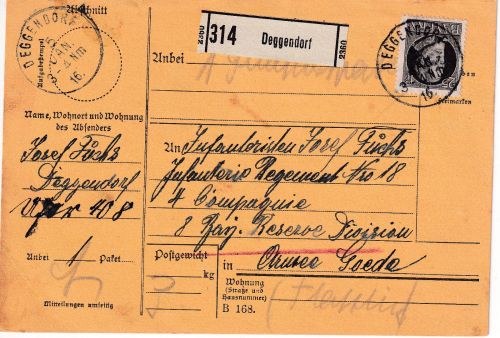 Abschnitt
DEGGENDORF
3 JAN.
4-5 Nm
16.
Aufgabestempel
2360
314 Deggendorf
2360
Anbei
DEGGENDORF
16
Freimarken
Name, Wohnort und Wohnung
des Absenders
Josef Fuchs
Deggendorf
408
Anbei 1 Paket.
Mitteilungen umseitig
An Infanteristen Josef Fuchs
Infanterie Regement Nro 18
4 Compagnie
8 Bay. Reserve Division
Postgewicht
kg
in Armee Goeda
Wohnung
(Straße und
Hausnummer)
B 168.